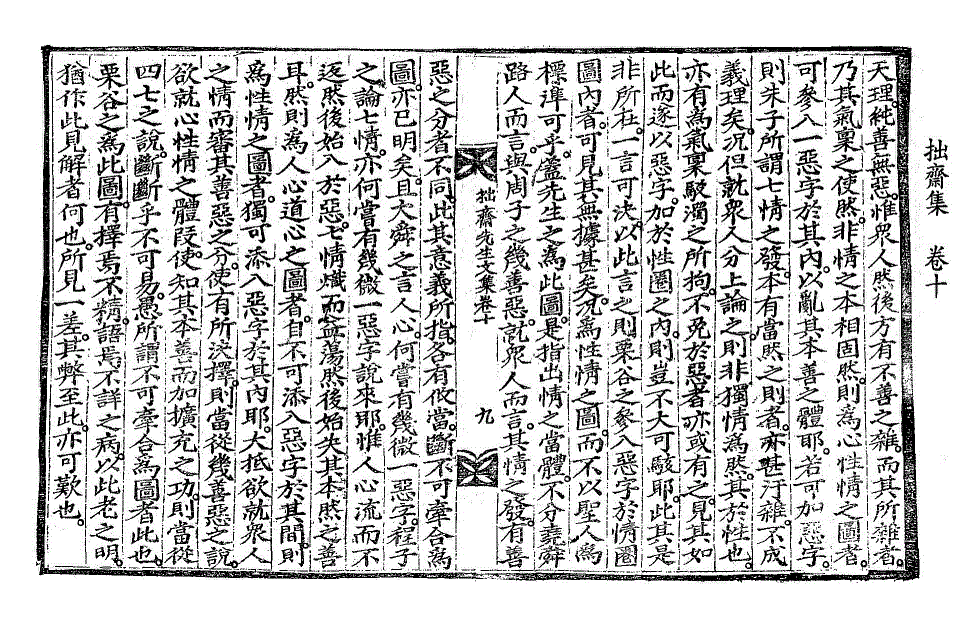 拙齋集　卷十
天理純善無惡。惟衆人然後方有不善之雜而其所雜者。
乃其氣稟之使然。非情之本相固然。則爲心性情之圖者。
可參入一惡字於其內。以亂其本善之體耶。若可加惡字。
則朱子所謂七情之發。本有當然之則者。亦甚汙雜。不成
義理矣。况但就衆人分上論之。則非獨情爲然。其於性也。
亦有爲氣稟駁濁之所拘。不免於惡者亦或有之。見其如
此而遂以惡字。加於性圈之內。則豈不大可駭耶。此其是
非所在。一言可決。以此言之則栗谷之參入惡字於情圈
圖內者。可見其無據甚矣。况爲性情之圖。而不以聖人爲
標準可乎。盖先生之爲此圖。是指出情之當體。不分堯舜
路人而言。與周子之幾善惡。就衆人而言。其情之發。有善
拙齋先生文集卷十
九
惡之分者不同。此其意義所指。各有攸當。斷不可牽合爲
圖。亦已明矣。且大舜之言人心。何嘗有幾微一惡字。程子
之論七情。亦何嘗有幾微一惡字說來耶。惟人心流而不
返然後始入於惡。七情熾而益蕩然後始失其本然之善
耳。然則爲人心道心之圖者。自不可添入惡字於其間。則
爲性情之圖者。獨可添入惡字於其內耶。大抵欲就衆人
之情而審其善惡之分。使有所決擇。則當從幾善惡之說。
欲就心性情之體段。使知其本善而加擴充之功。則當從
四七之說。斷斷乎不可易。愚所謂不可牽合爲圖者此也。
栗谷之爲此圖。有擇焉不精。語焉不詳之病。以此老之明。
猶作此見解者何也。所見一差。其弊至此。亦可歎也。